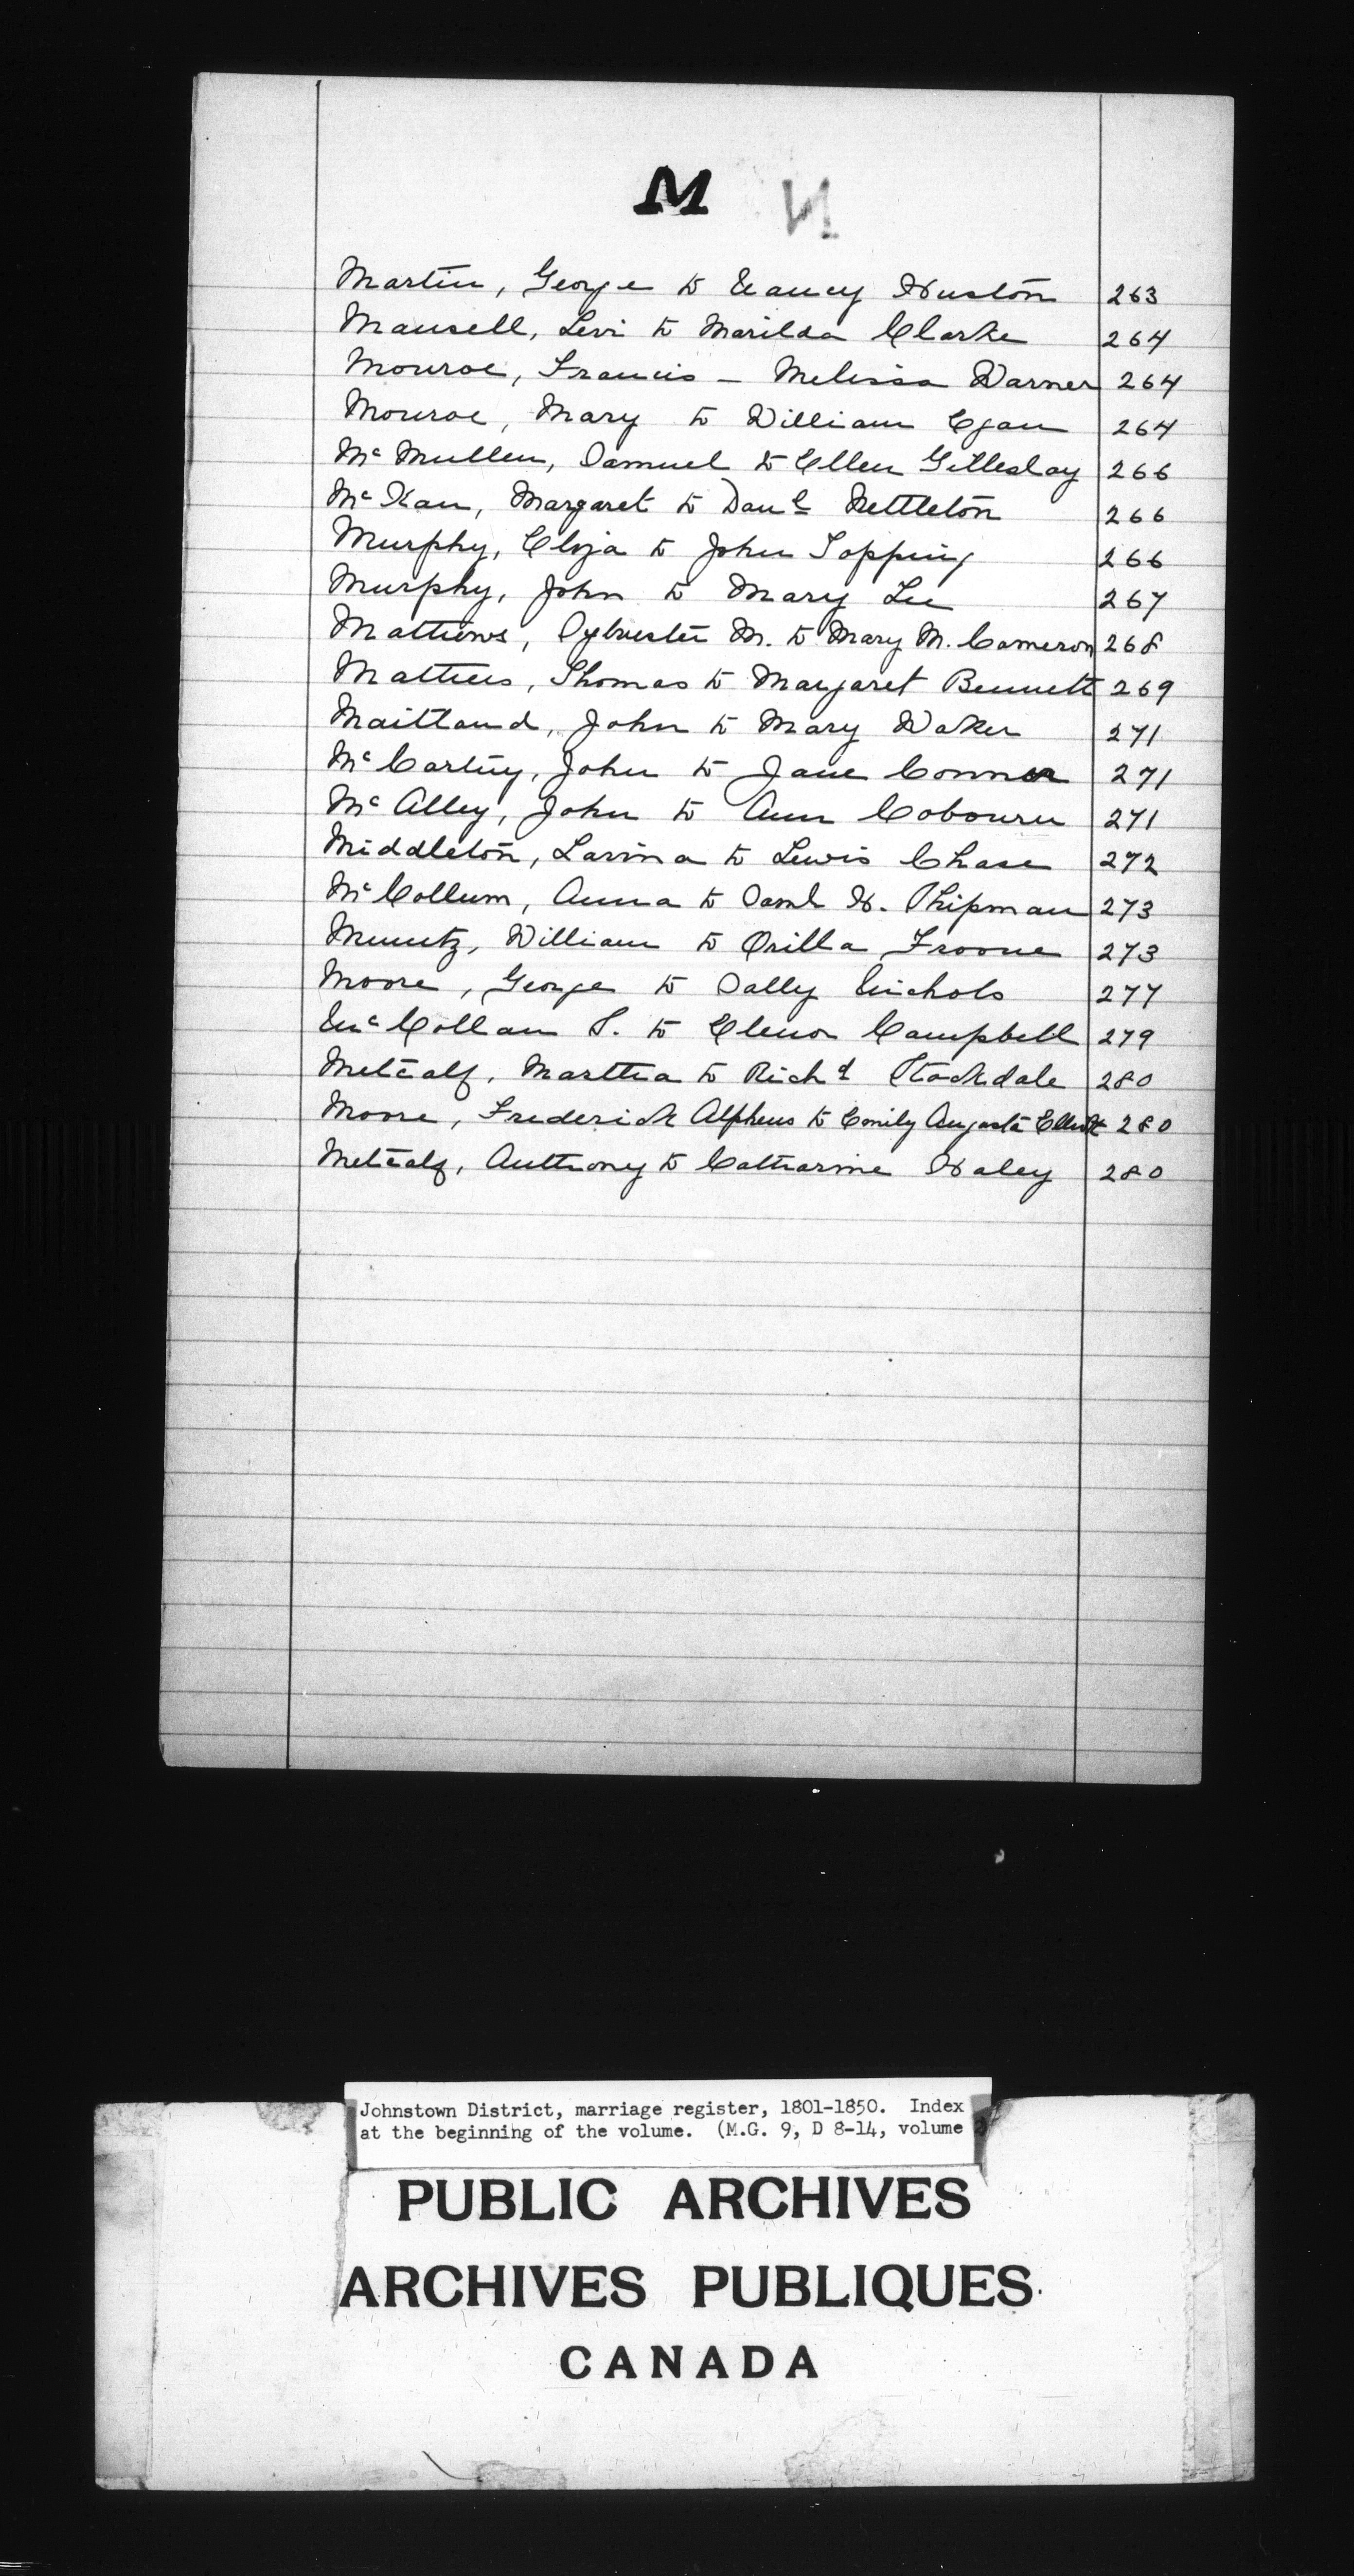 M N
Martin, George to Nancy Huston 263
Mansell, Levi to Marilda Clarke 264
Monroe, Francis - Melissa Warner 264
Monroe, Mary to William Egan 264
McMullen, Samuel to Ellen 266
McKan, Margaret to Danl Nettleton 266
Murphy, Eliza to John Topping 266
Murphy, John to Mary Lee 267
Mathews, Sylvester M. to Mary M. Cameron 268
Mathers, Thomas to Margaret Bennett 269
Maitland, John to Mary Waker 271
McCartny, John to Jane Conner 271
McAlley, John to Ann Cobourn 271
Middleton, Lavina to Lewis Chase 272
McCollum, Anna to Saml H. Shipman 273
Muntz, William to Orilla Froone 273
Moore, George to Sally Nichols 277
McCollam S. to Elenor Campbell 279
Metcalf, Martha to Richd Stockdale 280
Moore, Frederick Alpheus to Emily Augusta Elliott 280
Metcalf, Anthony to Catharine Haley 280
Johnstown District, marriage register, 1801-1850. Index
at the beginning of the volume. (M.G. 9, D 8-14, volume
PUBLIC ARCHIVES
ARCHIVES PUBLIQUES
CANADA